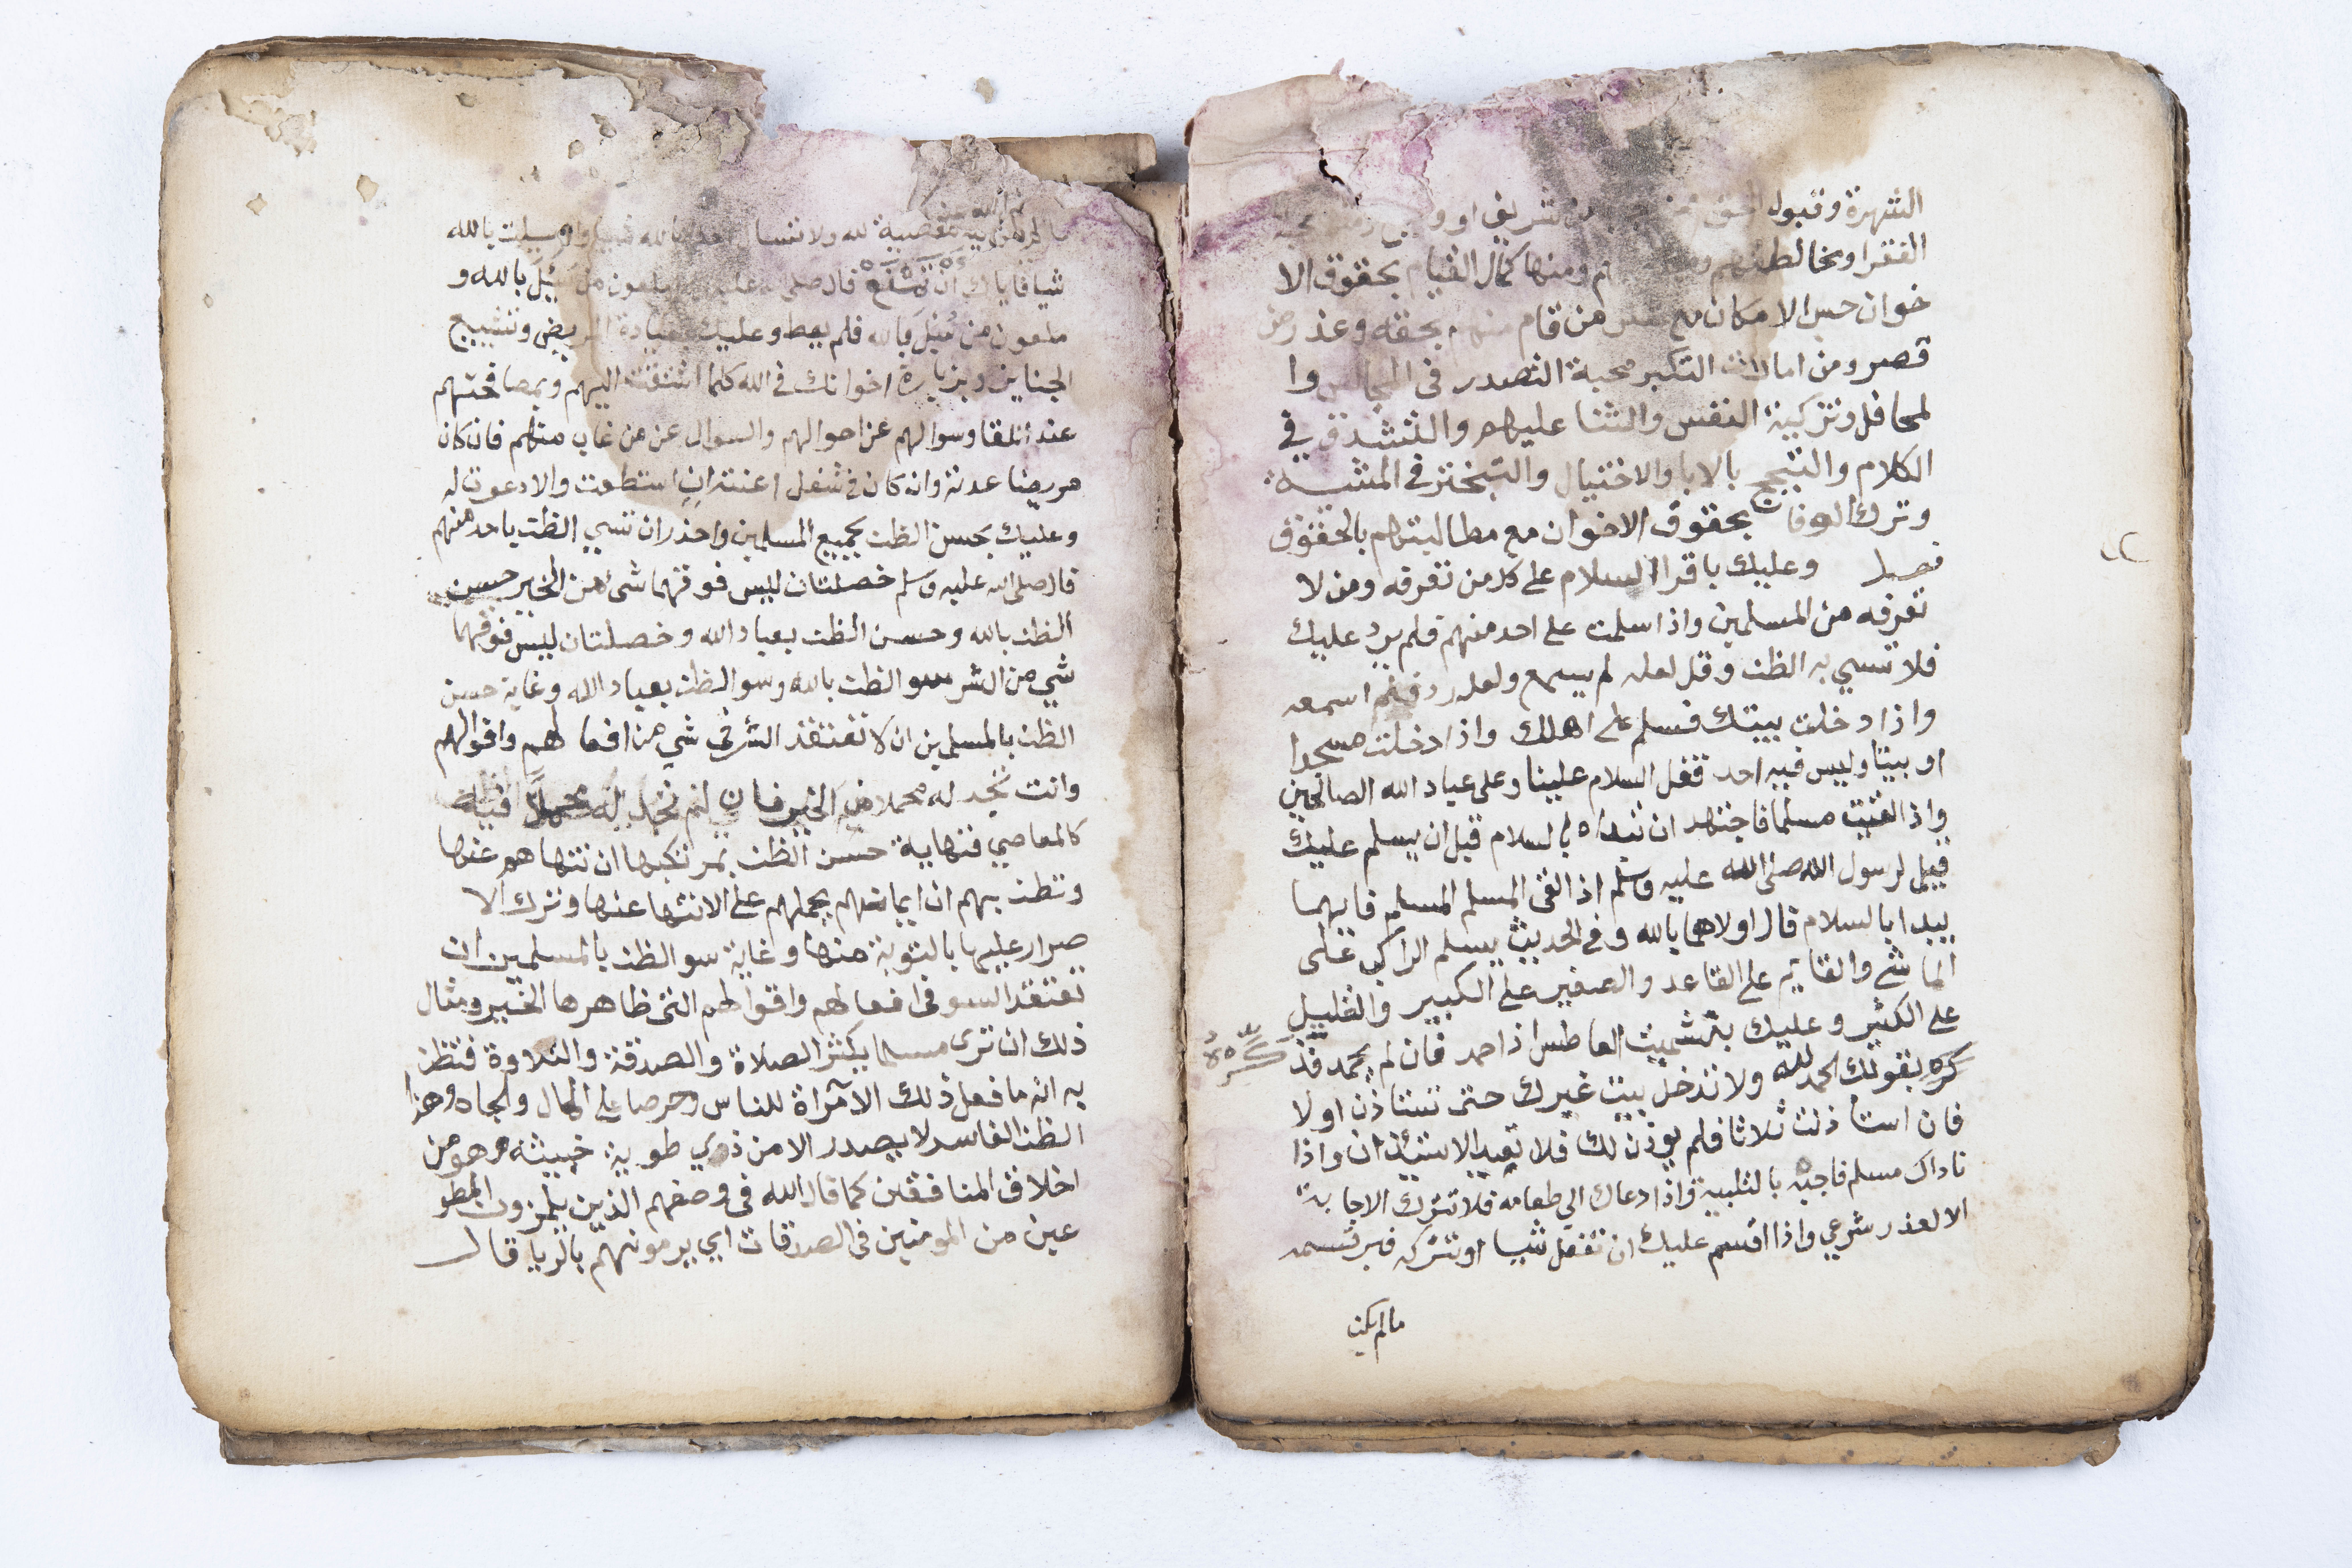 الشهرة وقبول الحق من شريف او و
الفقرا ومخالطتهم و ومنها كمال القيام بحقوق الا
خوان حسب الامكان مع من قام منهم بحقه وعذر من
قصر ومن امارات التكبر محبة التصدر في المجالس وا
لمحافل وتزكية النفس والثنا عليهم والتشدق في
الكلام والتبجح بالابا والاختيال والتبختر في المشيه
وترك الوفا بحقوق الاخوان مع مطالبتهم بالحقوق
فصل وعليك باقرا السلام على كل من تعرفه ومن لا
تعرفه من المسلمين واذا سلمت على احد منهم فلم يرد عليك
فلا تسي به الظن وقل لعله لم يسمع ولعله رد فلم اسمعه
واذا دخلت بيتك فسلم على اهلك واذا دخلت مسجدا
او بيتا وليس فيه احد فقل السلام علينا وعلى عباد الله الصالحين
واذا لقيت مسلما فاجتهد ان تبداه بالسلام قبل ان يسلم عليك
قيل لرسول الله صلى الله عليه وسلم اذا لقى المسلم المسلم فايهما
يبدا بالسلام قال اولاهما بالله وفي الحديث يسلم الراكب على
الماشي والقايم على القاعد والصغير على الكبير والقليل
على الكثير وعليك بتشميت العاطس اذا حمد فان لم يحمد فذ
كره بقولك الحمد لله ولا تدخل بيت غيرك حتى تستاذن اولا
فان استاذنت ثلاثا فلم يوذن لك فلا تعيد الاستئذان واذا
ناداك مسلم فاجبه بالتلبية واذا دعاك الي طعامه فلا تترك الاجابة
الا لعذر شرعي واذا اقسم عليك ان تفعل شيا او تتركه فبر قسمه
مالم يكن
مالم يكن فيه معصية لله ولا تسال احدا بالله شيا واذا سيلت بالله
شيا فاياك ان تمنع قال صلى عليه ملعون من سئل بالله و
ملعون من سئل بالله فلم يعط وعليك بعيادة المريض وتشييع
الجنايز وبزيارة اخوانك في الله كلما اشتقت اليهم وبمصافحتهم
عند اللقا وسوالهم عن احوالهم والسوال عن من غاب منهم فان كان
مريضا عدته وان كان في شغل اعنته ان استطعت والا دعوت له
وعليك بحسن الظن بجميع المسلمين واحذر ان تسي الظن باحد منهم
قال صلى الله عليه وسلم خصلتان ليس فوقهما شئ من الخير حسن
الظن بالله وحسن الظن بعباد الله وخصلتان ليس فوقهما
شي من الشر سو الظن بالله وسو الظن بعباد الله وغاية حسن
الظن بالمسلمين ان لا تعتقد الشر في شي من افعالهم واقوالهم
وانت تجد له محملا في الخير فان لم تجد له محملا فيه
كالمعاصي فنهاية حسن الظن بمرتكبها ان تنهاهم عنها
وتظن بهم ان ايمانهم يحملهم على الانتها عنها وترك الا
صرار عليها بالتوبة منها وغاية سو الظن بالمسلمين ان
تعتقد السو في افعالهم واقوالهم التي ظاهرها الخير ومثال
ذلك ان ترى مسلما يكثر الصلاة والصدقة والتلاوة فتظن
به انه ما فعل ذلك الا مرآاة للناس وحرصا على المال والجاه وهذا
الظن الفاسد لا يصدر الا من ذوي طوية خبيثه وهو من
اخلاق المنافقين كما قال الله في وصفهم الذين يلمزون المطو
عين من المومنين في الصدقات اي يرمونهم بالريا قال